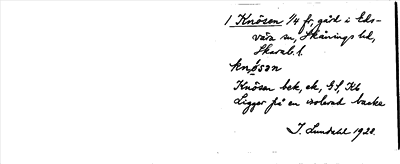 1 Knösen 1/4 fr, gård i Eks-
vära sn, Skånings hd,
Skarab. l.
knö̀sən
Knösen bek, ek, GS, Kb
Ligger på en isolerad backe
I. Lundahl 1920.